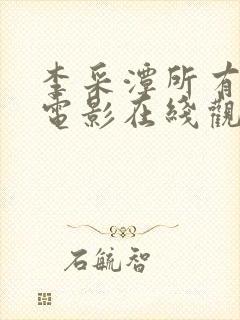 李采潭所有
電影在綫觀
石毓智